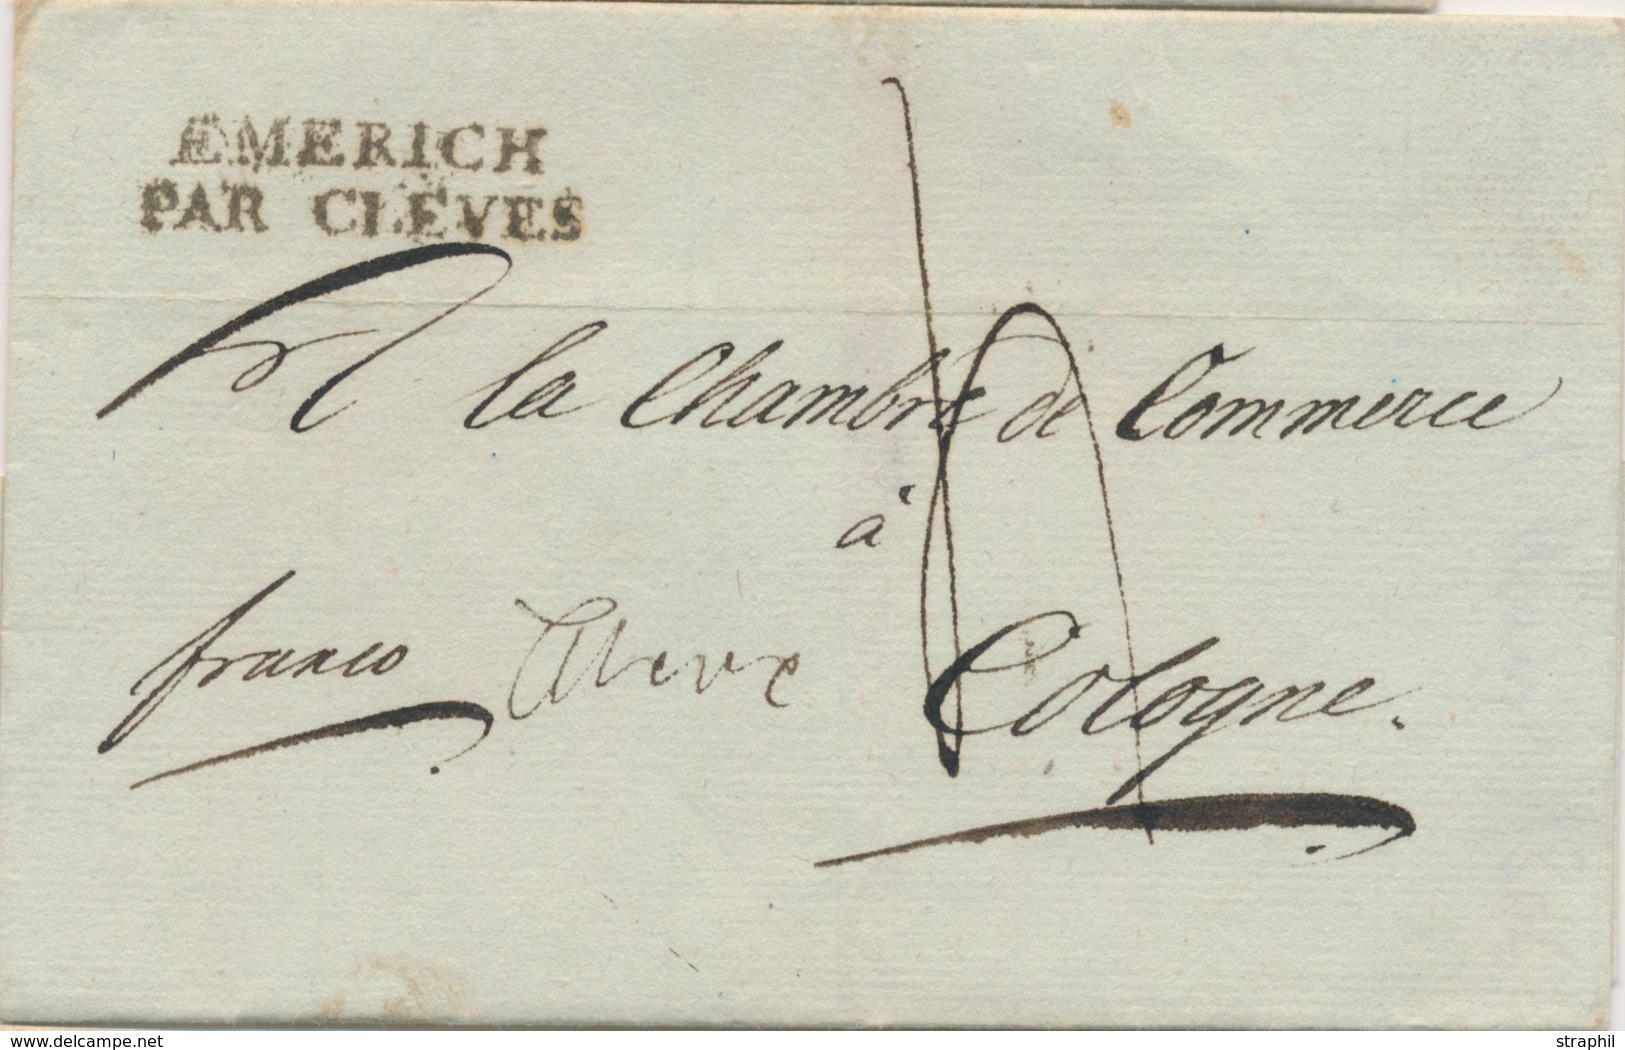 EMERICH
PAR CLEVES
A la Chambre de Commerce
à
franco Cleve Cologne.
delcampe.net
straphil